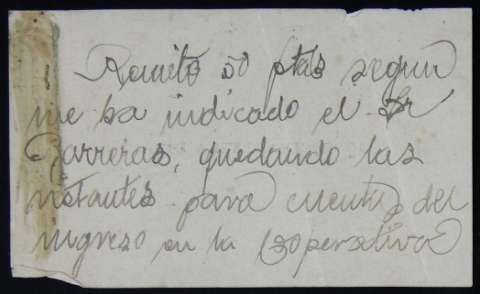 Remito 50 ptas segun
me ha indicado el Sr
Barreras, quedando las
restantes para cuenta del
ingreso en la Cooperativa